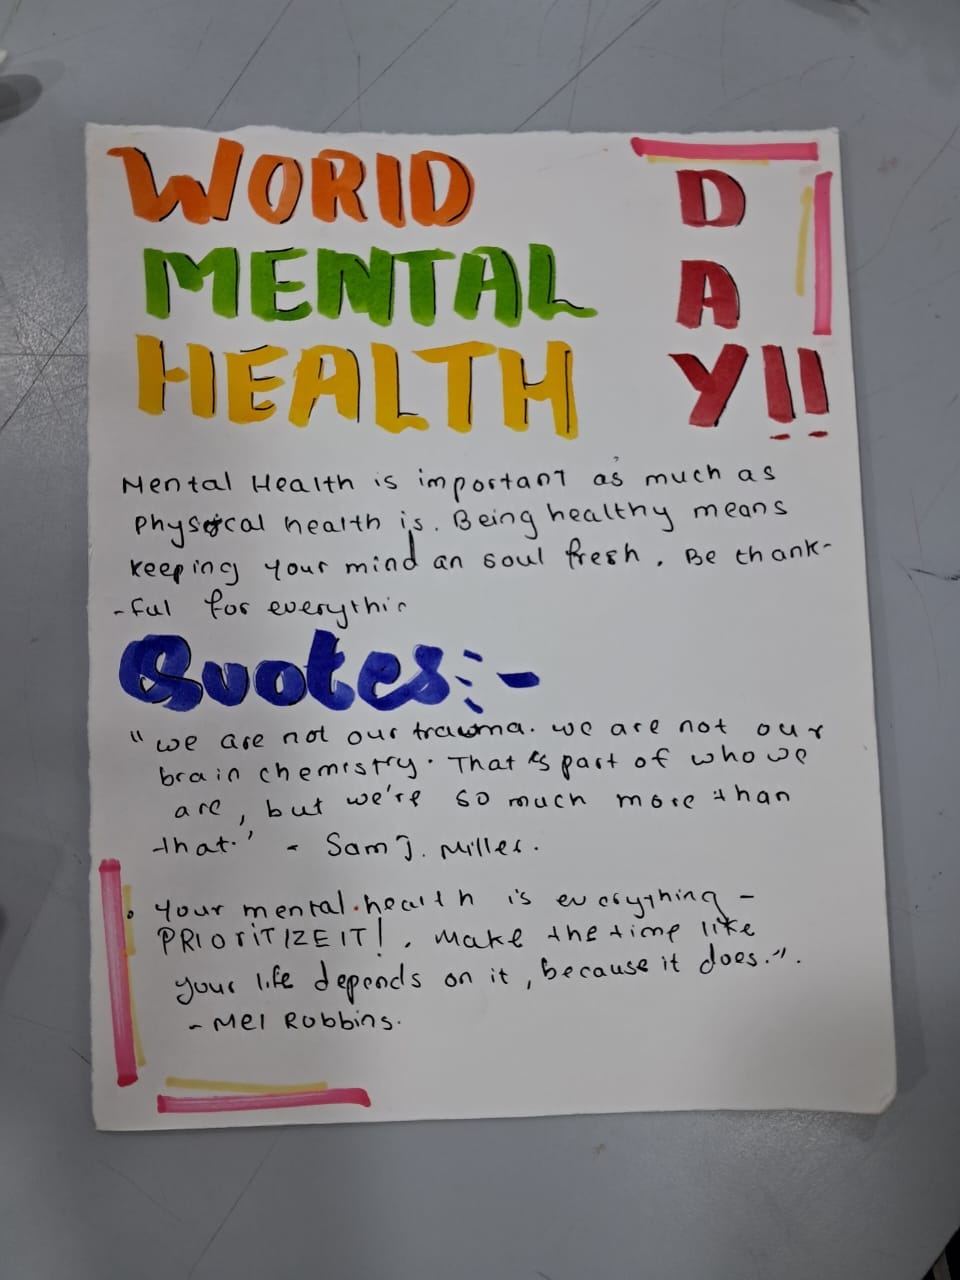 WORlD
MENTAL
HEALTH
DAY!!
Mental Health is important as much as
physical health is. Being healthy means
keeping your mind an soul fresh. Be thank-
-ful for everythin
Quotes:-
"we are not our trauma. we are not our
brain chemistry. That is part of who we
are, but we're so much more than
that.' - Sam J. Miller.
• Your mental health is everything -
PRIOriTIZE IT!. Make the time like
your life depends on it, because it does.".
- Mel Robbins.